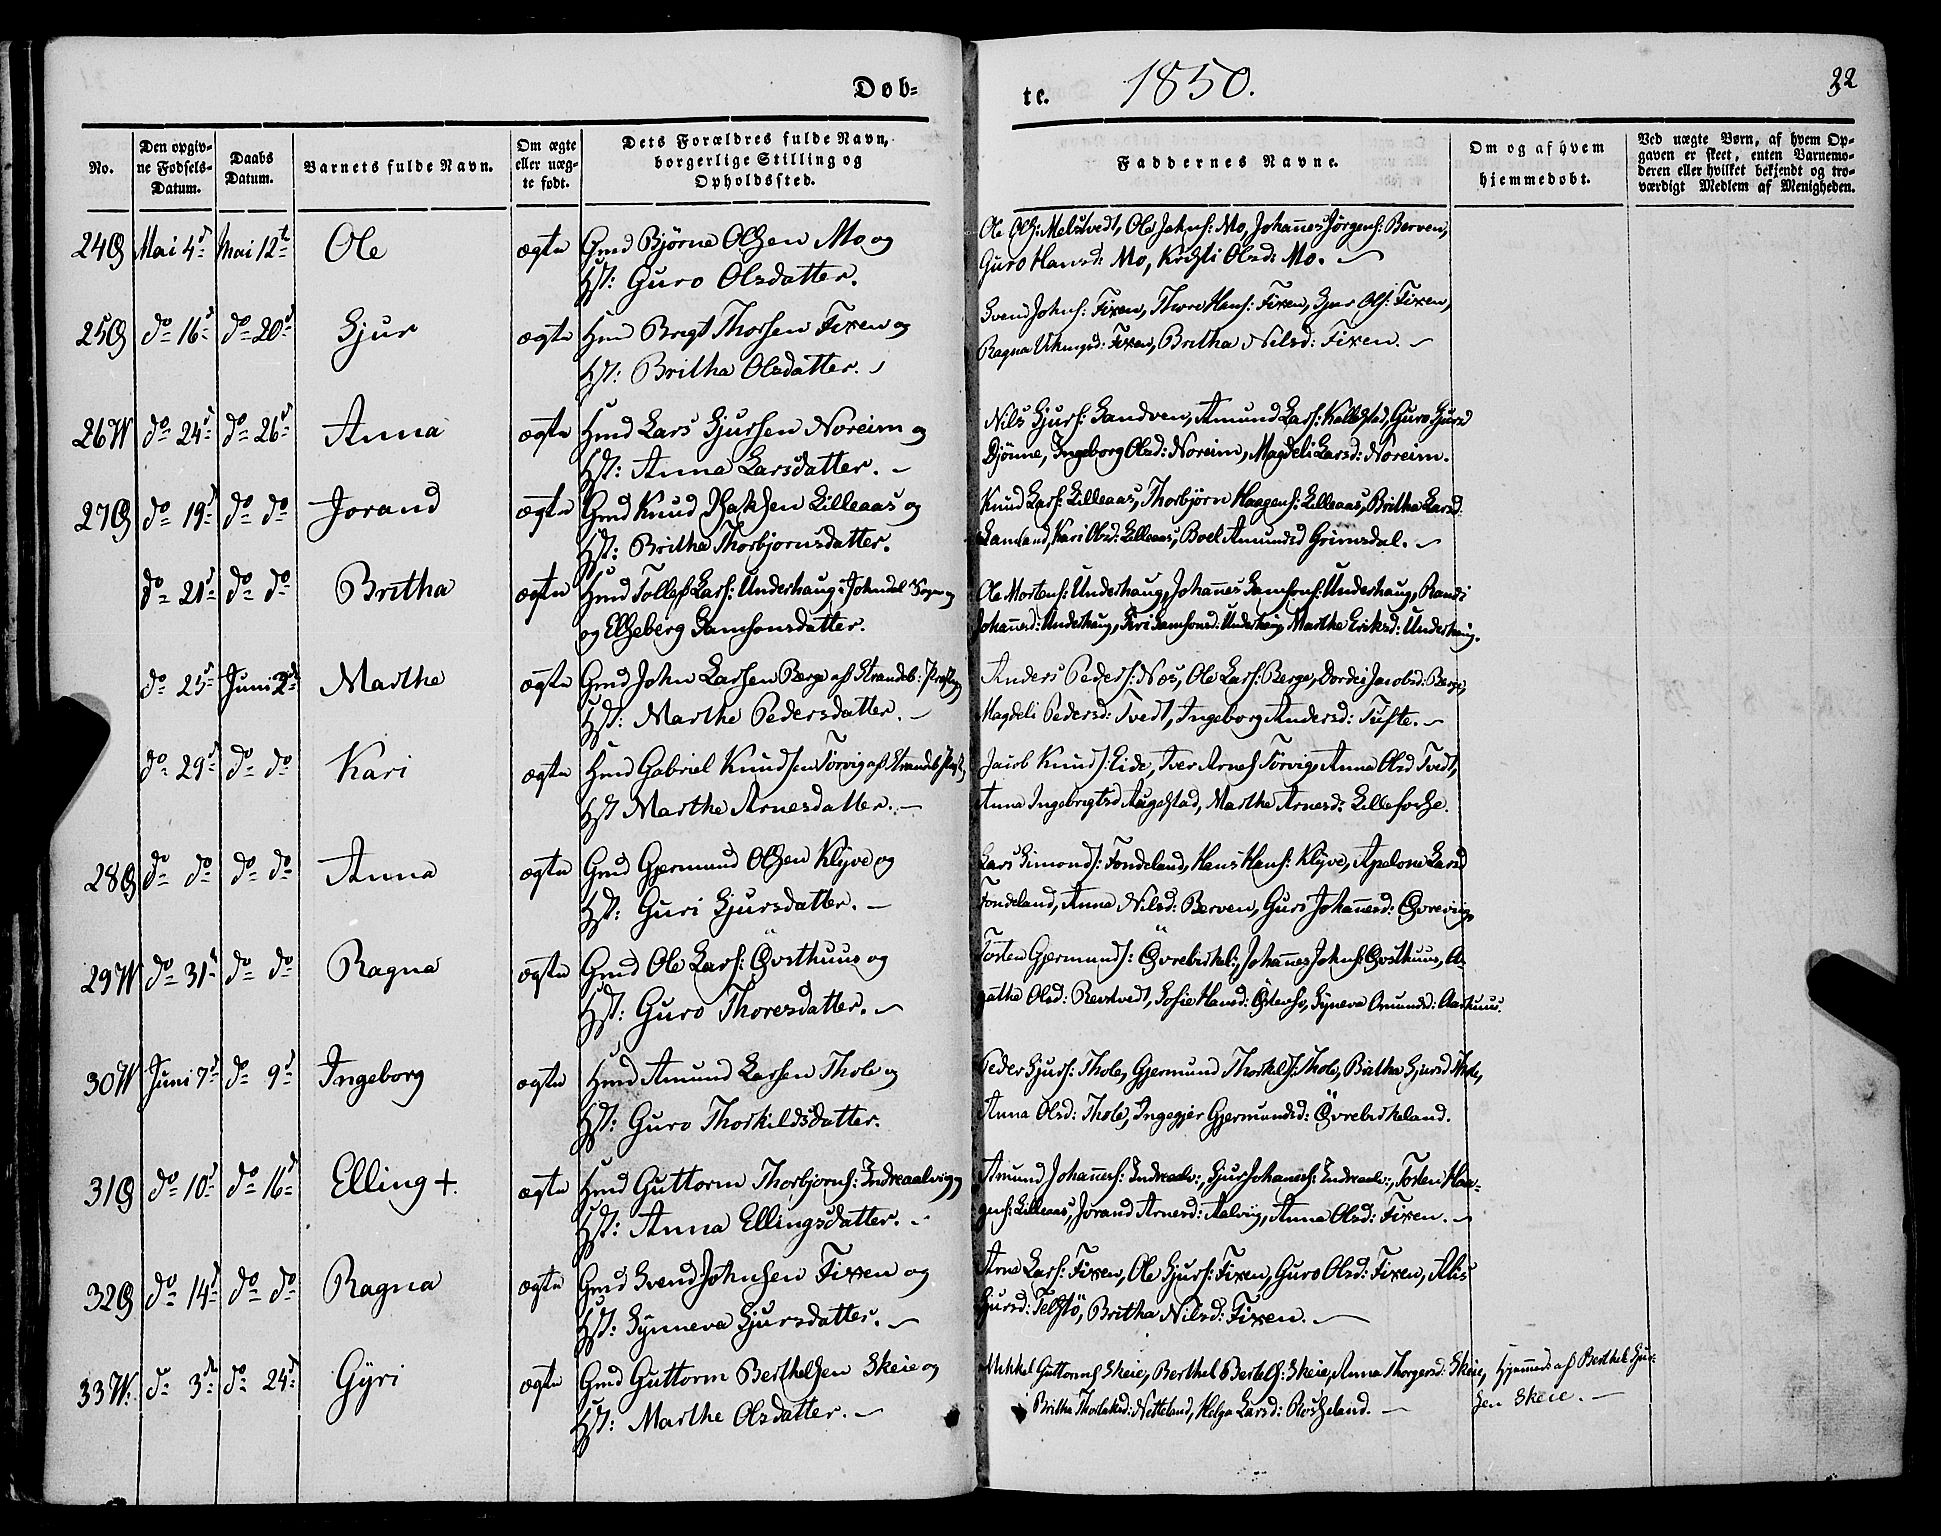 Døb-
te. 1850. 22
No. Den opgiv-ne Fødsels-Datum. Daabs Datum. Barnets fulde Navn. Om ægte eller uæg-te født. Dets Forældres fulde Navn, borgerlige Stilling og Opholdssted. Faddernes Navne. Om og af hvem hjemmedøbt. Ved uægte Børn, af hvem Op-gaven er skeet, enten Barnemo-deren eller hvilket bekjendt og tro-værdigt Medlem af Menigheden.
24Ø Mai 4d Mai 12te Ole ægte Gmd Bjørne Olsen Mo og
Hst: Guro Olsdatter.
Ole Ols: Melstvedt, Ole Johns: Mo, Johannes Jørgens: Berven,
Guro Hansd: Mo, Kristi Olsd: Mo. –
25Ø do 16d do 20d Sjur ægte Hmd Brigt Thorsen Fixen og
Hst: Britha Olsdatter.
Svend Johns: Fixen, Thore Hans: Fixen, Sjur Ols: Fixen,
Ragna Vikingsd: Fixen, Britha Nilsd: Fixen. –
26W do 24d do 26d Anna ægte Hmd Lars Sjursen Noreim og
Hst: Anna Larsdatter. –
Nils Sjurs: Sandven, Amund Lars: Kallestad, Guro Sjursd
Djønne, Ingeborg Olsd: Noreim, Magdeli Larsd: Noreim.
27Ø do 19d do do Jorand ægte Gmd Knud Isaksen Lilleaas og
Hst: Britha Thorbjørnsdatter.
Knud Lars: Lilleaas, Thorbjørn Haagens: Lilleaas, Britha Larsd:
Samland, Kari Olsd: Lilleaas, Boel Amundsd Grimsdal. –
do 21d do do Britha ægte Hmd Tollef Lars: Underhaug i Jondal Sogn og
og Elseberg Samsonsdatter.
Ole Mortens: Underhaug, Johannes Samsons: Underhaug, Randi
Johannesd: Underhaug, Siri Samsonsd: Underhaug, Marthe Eriksd: Underhaug.
do 25d Juni 2d Marthe ægte Gmd John Larsen Berge af Strandeb: Præstg
Hst: Marthe Pedersdatter. –
Anders Peders: Nes, Ole Lars: Berge, Dordei Jacobsd: Berge,
Magdeli Pedersd: Tvedt, Ingeborg Andersd: Tufte. –
do 29d do do Kari ægte Hmd Gabriel Knudsen Torvig af Strandeb Præstg
Hst Marthe Arnesdatter. –
Jacob Knuds: Eide, Iver Arnes Torvig, Anna Olsd Tvedt,
Anna Ingebrigtsd Augestad, Marthe Arnesd: Lillefosse.
28Ø do do do do Anna ægte Gmd Gjermund Olsen Klyve og
Hst: Guri Sjursdatter. –
Lars Simonds: Fondeland, Hans Hans: Klyve, Apelone Larsd
Fondeland, Anna Nilsd: Berven, Guri Johannesd: Øvrevig,
29W do 31te do do Ragna ægte Gmd Ole Lars: Østhuus og
Hst: Guro Thoresdatter. –
Tosten Gjermunds: Øvrebirkel:, Johannes Johns: Østhuus, A-
gatha Olsd: Revstvedt, Sofie Hansd: Østensø, Synneva Omundsd: Aarhuus.
30W Juni 7d do 9d Ingeborg ægte Hmd Amund Larsen Thole og
Hst: Guro Thorkildsdatter.
Peder Sjurs: Thole, Gjermund Thorkels: Thole, Britha Sjursd Thole,
Anna Olsd: Thole, Ingegjer Gjermundsd: Øvrebirkeland.
31Ø do 10d do 16d Elling +. ægte Hmd Guttorm Thorbjørns: Indreaalvig og
Hst: Anna Ellingsdatter. –
Amund Johannes: Indreaalv:, Sjur Johannes: Indreaalv:, Tosten Haa-
gens: Lilleaas, Jorand Arnesd: Aalvig, Anna Olsd: Fixen. –
32Ø do 14d do do Ragna ægte Gmd Svend Johnsen Fixen og
Hst: Synneva Sjursdatter. –
Arne Lars: Fixen, Ole Sjurs: Fixen, Guro Olsd: Fixen, Alis
Sjursd: Telstø, Britha Nilsd: Fixen. –
33W. do 3d do 24d Gyri ægte Gmd Guttorm Berthelsen Skeie og
Hst: Marthe Olsdatter. –
Mikkel Guttorms Skeie, Berthel Bertels: Skeie, Anna Thorgersd: Skeie,
Britha Thorlaksd: Netteland, Helga Larsd: Rosseland. –
Hjemmed: af Berthel Gut-
sen Skeie. –